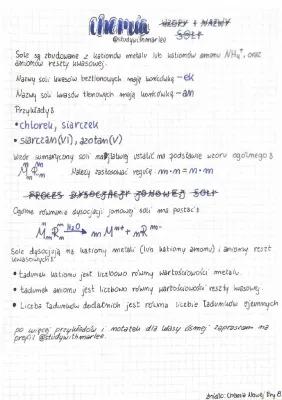 chemia WZORY I NAZWY
@studywithmarlee SOLI
Sole są zbudowane z kationów metalu lub kationów amonu NH₄⁺, oraz
anionów reszty kwasowej.
Nazwy soli kwasów beztlenowych mają końcówkę -ek
Nazwy soli kwasów tlenowych mają końcówkę -an
Przykłady:
• chlorek, siarczek
• siarczan(VI), azotan(V)
Wzór sumaryczny soli najłatwiej ustalić na podstawie wzoru ogólnego:
Należy zastosować regułę: m·n = n·m
PROCES DYSOCJACJI JONOWEJ SOLI
Ogólne równania dysocjacji jonowej soli ma postać:
H₂O
Sole dysocjują na kationy metali (lub kationy amonu) i aniony reszt
kwasowych:
• ładunek kationu jest liczbowo równy wartościowości metalu.
• ładunek anionu jest liczbowo równy wartościowości reszty kwasowej.
• Liczba ładunków dodatnich jest równa liczbie ładunków ujemnych
po więcej przykładów i notatek dla klasy ósmej zapraszam na
profil @studywithmarlee.
źródło: Chemia Nowej Ery 8